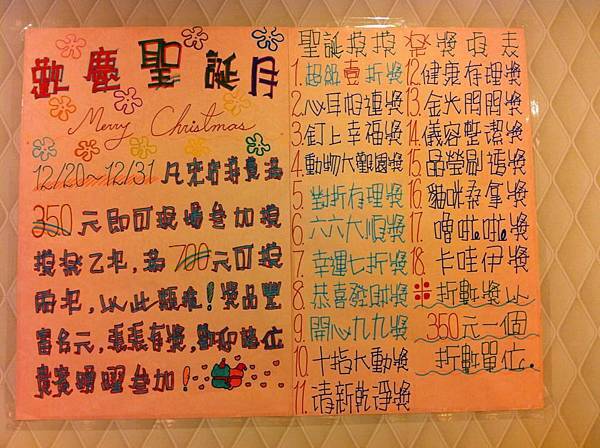 歡慶聖誕月
Merry Christmas
12/20~12/31 凡來店消費滿
350元即可現場參加摸
摸彩乙次,滿700元可摸
兩次,以此類推!獎品豐
富多元,張張有獎,歡迎諸位
貴賓踴躍參加!
聖誕摸摸 獎項表
1. 超級壹折獎
2. 心耳相連獎
3. 釘上幸福獎
4. 動物大觀園獎
5. 對折有理獎
6. 六六大順獎
7. 幸運七折獎
8. 恭喜發財獎
9. 開心九九獎
10. 十指大動獎
11. 清新乾淨獎
12. 健康有理獎
13. 金光閃閃獎
14. 儀容整潔獎
15. 晶瑩剔透獎
16. 貓咪桑拿獎
17. 嚕啦啦獎
18. 卡哇伊獎
※折斬獎以
350元一個
折斬單位.